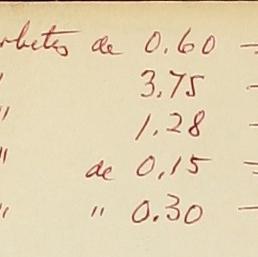 rbetes de 0.60 —
" 3,75 —
" 1.28 —
" de 0,15 —
" " 0.30 —